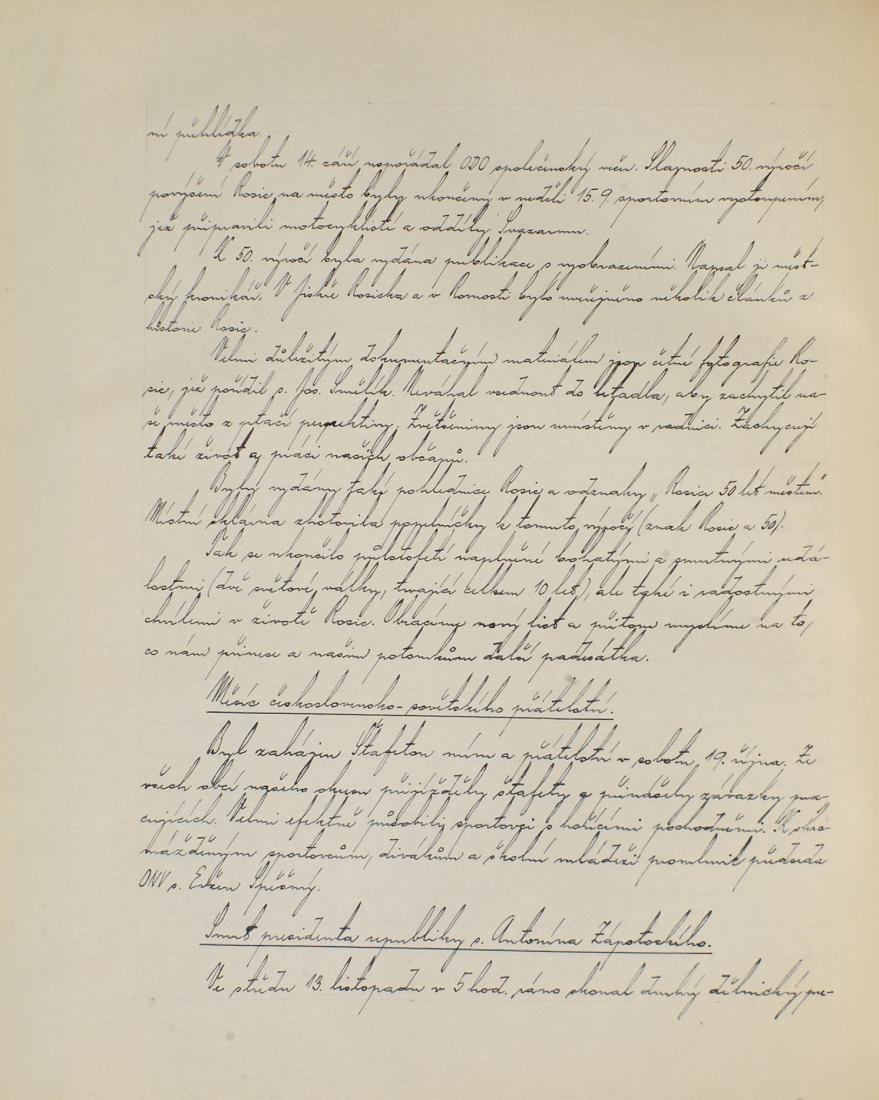 ní přehlídka.
V sobotu 14. září uspořádal ODO společenský večer. Slavnosti 50. výročí
povýšení Rosic na město byly ukončeny v neděli 15. 9. sportovním vystoupením,
jež připravili motocyklisté a oddíly Svazarmu.
K 50. výročí byla vydána publikace s vyobrazeními. Napsal ji měst-
ský kronikář. V Jiskře Rosicka a v Rovnosti bylo uveřejněno několik článků z
historie Rosic.
Velmi důležitým dokumentačním materiálem jsou četné fotografie Ro-
sic, jež pořídil s. Jos. Smělík. Neváhal vsednout do letadla, aby zachytil na-
še město z ptačí perspektivy. Zvětšeniny jsou umístěny v radnici. Zachycují
také život a práci našich občanů.
Byly vydány také pohlednice Rosic a odznaky „Rosice 50 let městem".
Místní sklárna zhotovila popelníčky k tomuto výročí (znak Rosic a 50).
Tak se ukončilo půlstoletí naplněné bohatými a smutnými udá-
lostmi (dvě světové války, trvající celkem 10 let), ale také i radostnými
chvílemi v životě Rosic. Obracíme nový list a přitom myslíme na to,
co nám přinese a našim potomkům další padesátka.
Měsíc československo-sovětského přátelství.
Byl zahájen Štafetou míru a přátelství v sobotu, 19. října. Ze
všech obcí našeho okresu přijížděly štafety a přinášely závazky pra-
cujících. Velmi efektně působily sportovci s hořícími pochodněmi. K shro-
mážděným sportovcům, divákům a školní mládeži promluvil předseda
ONV s. Evžen Spěšný.
Smrt presidenta republiky s. Antonína Zápotockého.
Ve středu 13. listopadu v 5 hod. ráno skonal druhý dělnický pre-